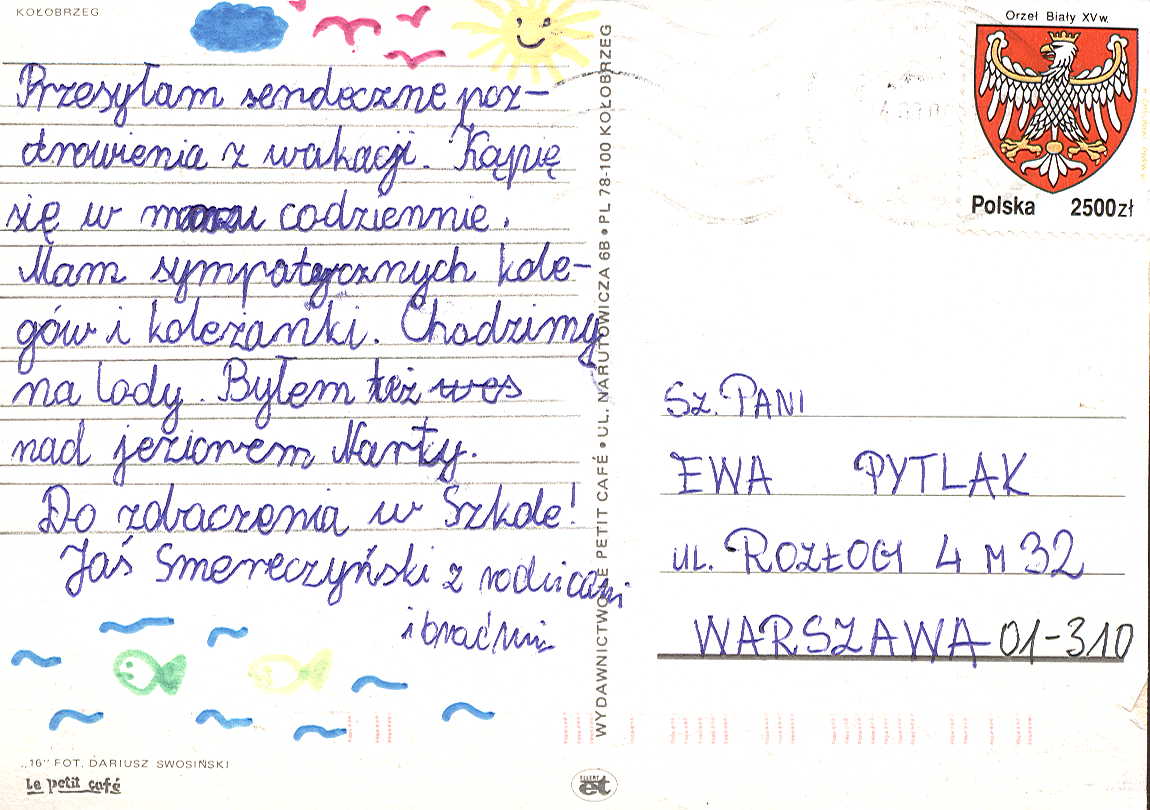 KOŁOBRZEG
Przesyłam serdeczne poz-
drowienia z wakacji. Kąpię
się w morzu codziennie.
Mam sympatycznych kole-
gów i koleżanki. Chodzimy
na lody. Byłem też wes
nad jeziorem Narty.
Do zobaczenia w Szkole!
Jaś Smereczyński z rodzicami
i braćmi
„16" FOT. DARIUSZ SWOSIŃSKI
Le petit café
WYDAWNICTWO PETIT CAFÉ • UL. NARUTOWICZA 6B • PL 78-100 KOŁOBRZEG
et
Orzeł Biały XV w.
Polska 2500zł
SZ. PANI
EWA PYTLAK
UL. ROZŁOGI 4 M 32
WARSZAWA 01-310